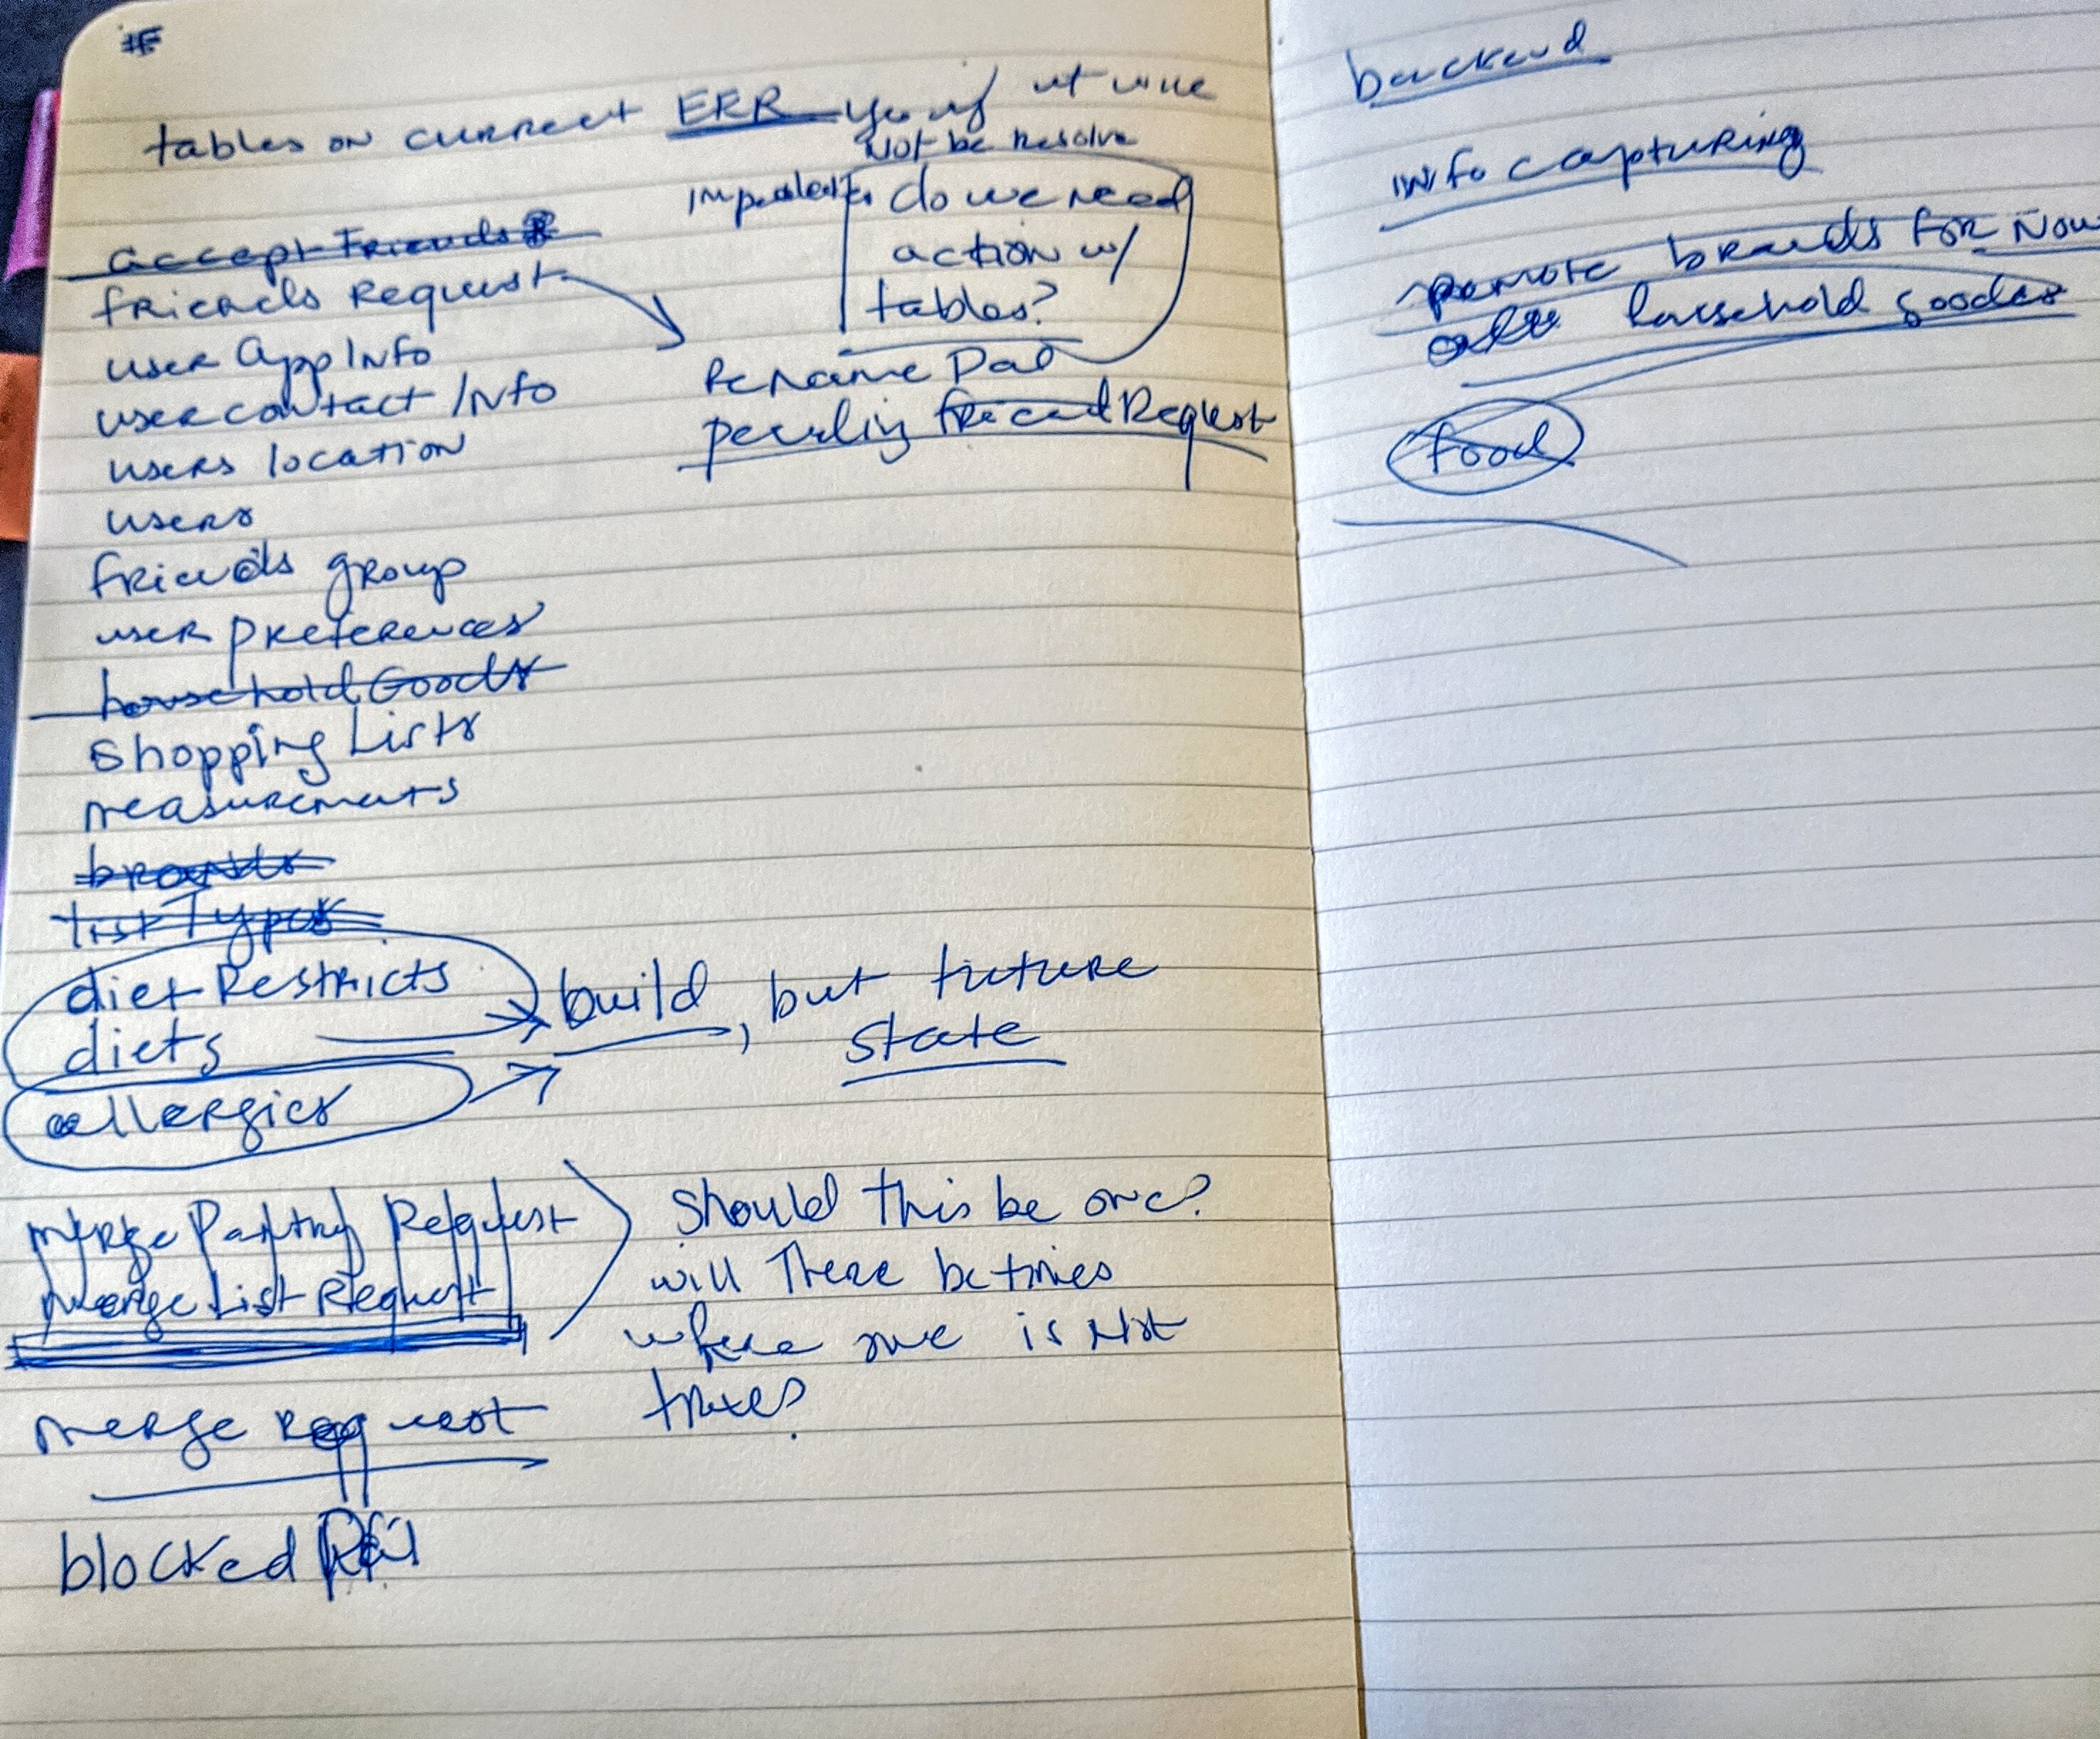 tables on current ERR yes if it will
Not be resolve
do we need
action w/
tables?
accept Friends
friends Request
user App Info
user contact Info
users location
users
friends group
user preferences
household Goods
Shopping Lists
measurements
brands
list Types
diet Restricts
diets
allergies
rename
pending friend Request
build, but future
state
merge Pantry Request
merge List Request
should this be one?
will There be times
where one is Not
true?
merge request
blocked
backend
info capturing
remote brands for Now
household goods
food